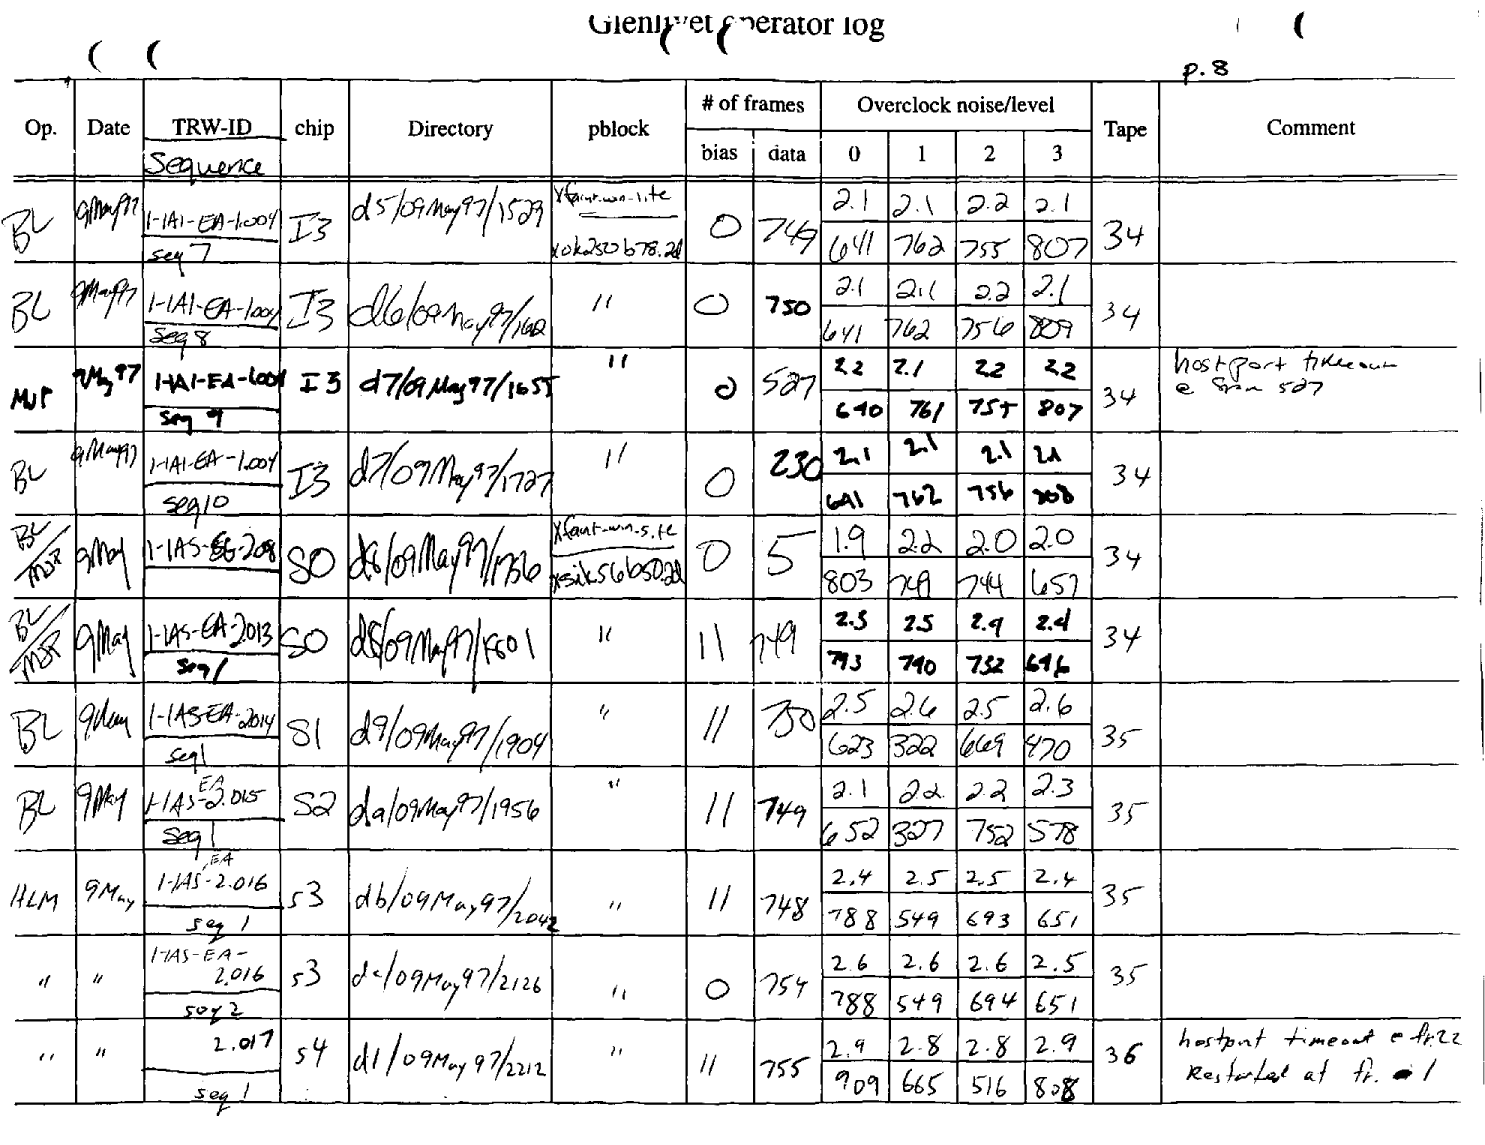 Glenlivet operator log
p. 8
Op. Date TRW-ID chip Directory pblock # of frames Overclock noise/level Tape Comment
Sequence bias data 0 1 2 3
BL 9May97 1-IAI-EA-1.004 I3 d5/09May97/1529 xfaint-win-1.te 0 749 2.1 2.1 2.2 2.1 34
seq 7 xok2s0b78.2d 641 762 755 807
BL 9May97 1-IAI-EA-1.004 I3 d6/09May97/ " 0 750 2.1 2.1 2.2 2.1 34
seq 8 641 762 756 809
MJP 9May97 1-IAI-EA-1.004 I3 d7/09May97/1655 " 0 527 2.2 2.1 2.2 2.2 34 hostport timeout
seq 9 640 761 755 807 @ 527
BL 9May97 1-IAI-EA-1.004 I3 d7/09May97/1727 " 0 230 2.1 2.1 2.1 2.1 34
seq 10 641 762 756 808
BL/MJP 9May 1-IAS-EG-208 S0 d8/09May97/1736 xfaint-win-s.te 0 5 1.9 2.2 2.0 2.0 34
xsiks6b50.2d 803 749 744 657
BL/MJP 9May 1-IAS-EA-2.013 S0 d8/09May97/1801 " 11 749 2.5 2.5 2.4 2.4 34
seq 1 793 740 732 646
BL 9May 1-IAS-EA-2.014 S1 d9/09May97/1904 " 11 750 2.5 2.6 2.5 2.6 35
seq 1 623 322 669 470
BL 9May 1-IAS-EA-2.015 S2 da/09May97/1956 " 11 749 2.1 2.2 2.2 2.3 35
seq 1 652 327 752 578
HLM 9May 1-IAS-EA-2.016 S3 db/09May97/2042 " 11 748 2.4 2.5 2.5 2.4 35
seq 1 788 549 693 651
" " 1-IAS-EA-2.016 S3 dc/09May97/2126 " 0 754 2.6 2.6 2.6 2.5 35
seq 2 788 549 694 651
" " 2.017 S4 d1/09May97/2212 " 11 755 2.9 2.8 2.8 2.9 36 hostport timeout @ fr.22
seq 1 909 665 516 808 Restarted at fr. 1